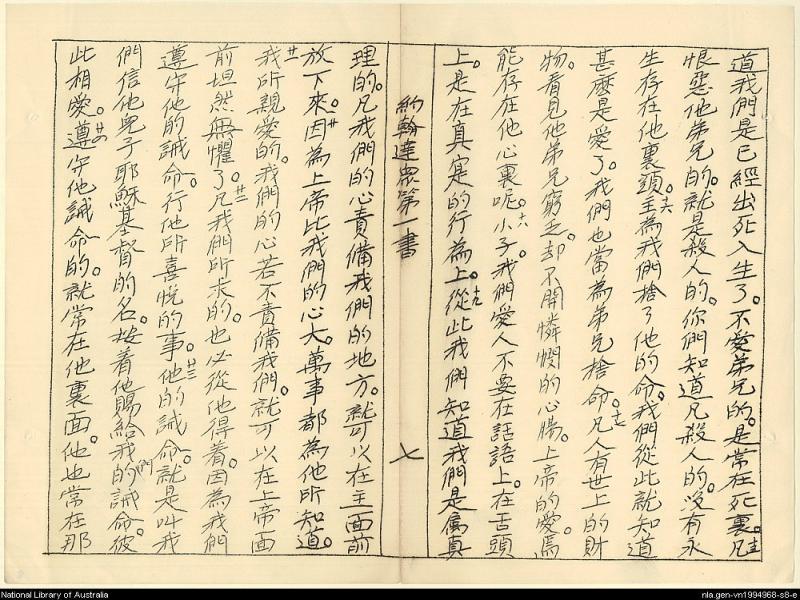 道我們是已經出死入生了。不愛弟兄的。是常在死裏。凡
恨惡他弟兄的。就是殺人的。你們知道凡殺人的。沒有永
生存在他裏頭。十六主為我們捨了他的命。我們從此就知道
甚麼是愛了。我們也當為弟兄捨命。十七凡人有世上的財
物。看見他弟兄窮乏。却不開憐憫的心腸。上帝的愛。焉
能存在他心裏呢。十八小子。我們愛人不要在話語上。在舌頭
上。是在真寔的行為上。十九從此我們知道我們是屬真
約翰達眾第一書
七
理的。凡我們的心責備我們的地方。就可以在主面前
放下來。二十因為上帝比我們的心大。萬事都為他所知道。
廿一我所親愛的。我們的心若不責備我們。就可以在上帝面
前坦然無懼了。廿二凡我們所求的。也必從他得着。因為我們
遵守他的誡命。行他所喜悅的事。廿三他的誡命。就是叫我
們信他兒子耶穌基督的名。按着他賜給我們的誡命。彼
此相愛。廿四遵守他誡命的。就常在他裏面。他也常在那
National Library of Australia
nla.gen-vn1994968-s8-e